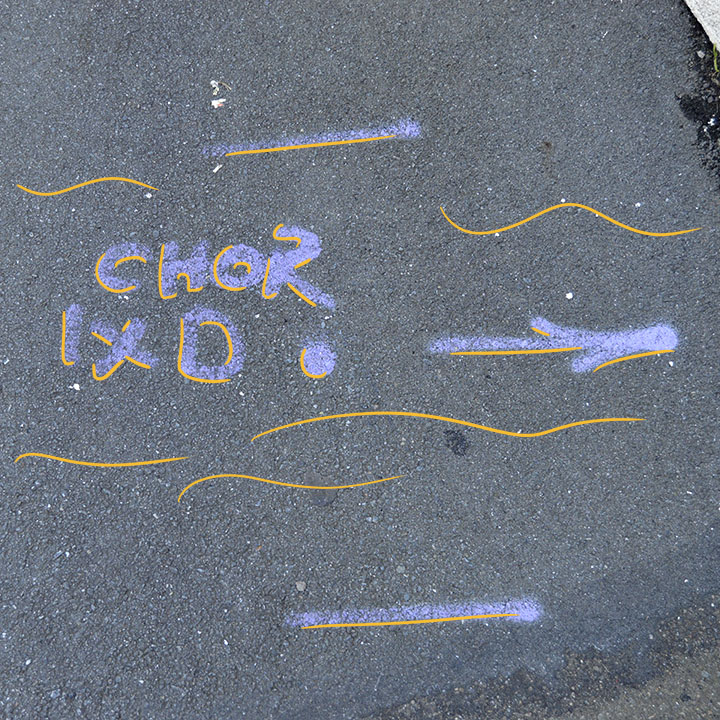 CHOR
1XD